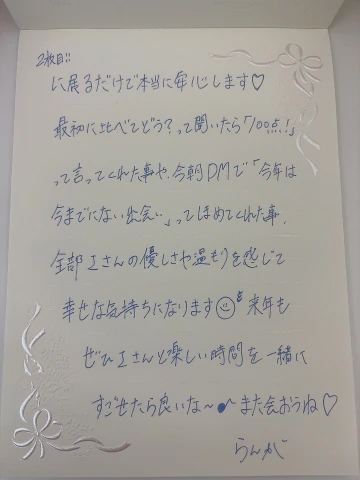 2枚目!!
に戻るだけで本当に安心します♡
最初に比べてどう?って聞いたら「100点!」
って言ってくれた事や、今朝DMで「今年は
今までにない出会い」ってほめてくれた事、
全部Iさんの優しさや温もりを感じて
幸せな気持ちになります☺ 来年も
ぜひIさんと楽しい時間を一緒に
すごせたら良いな〜 また会おうね♡
らんが